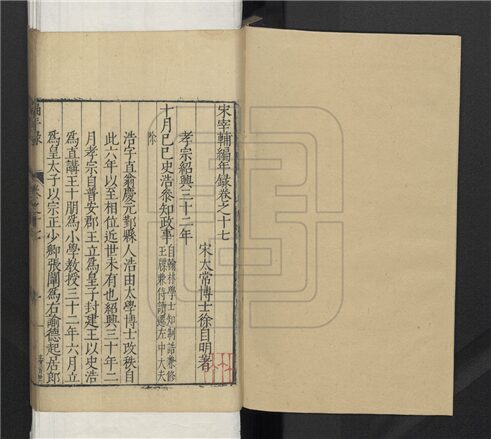 宋宰輔編年錄卷之十七
宋太常博士徐自明著
孝宗紹興三十二年
十月己巳史浩參知政事自翰林學士知制誥兼修
王牒兼侍讀遷左中大夫
除
浩字直翁慶元鄞縣人浩由太學博士改秩自
此六年以至相位近世未有也紹興三十年二
月孝宗自普安郡王立為皇子封建王以史浩
為直講王十朋為小學教授三十二年六月立
為皇太子以宗正少卿張闡為右諭德起居郎